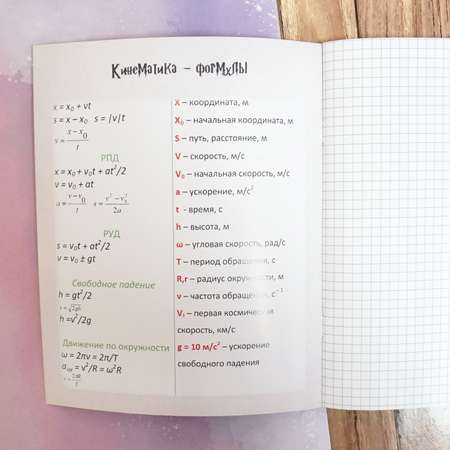 Кинематика – формулы
x = x₀ + vt
s = x – x₀ s = |v|t
v = (x – x₀)/t
РПД
x = x₀ + v₀t + at²/2
v = v₀ + at
a = (v – v₀)/t s = (v² – v₀²)/2a
РУД
s = v₀t + at²/2
v = v₀ ± gt
Свободное падение
h = gt²/2
v = √2gh
h = v²/2g
Движение по окружности
ω = 2πν = 2π/T
= v²/R = ω²R
v = 2πR/T
X – координата, м
X₀ – начальная координата, м
S – путь, расстояние, м
V – скорость, м/с
V₀ – начальная скорость, м/с
a – ускорение, м/с²
t - время, с
h – высота, м
ω – угловая скорость, рад/с
T – период обращения, с
R,r – радиус окружности, м
ν – частота обращения, с⁻¹
V₁ – первая космическая
скорость, км/с
g = 10 м/с² – ускорение
свободного падения